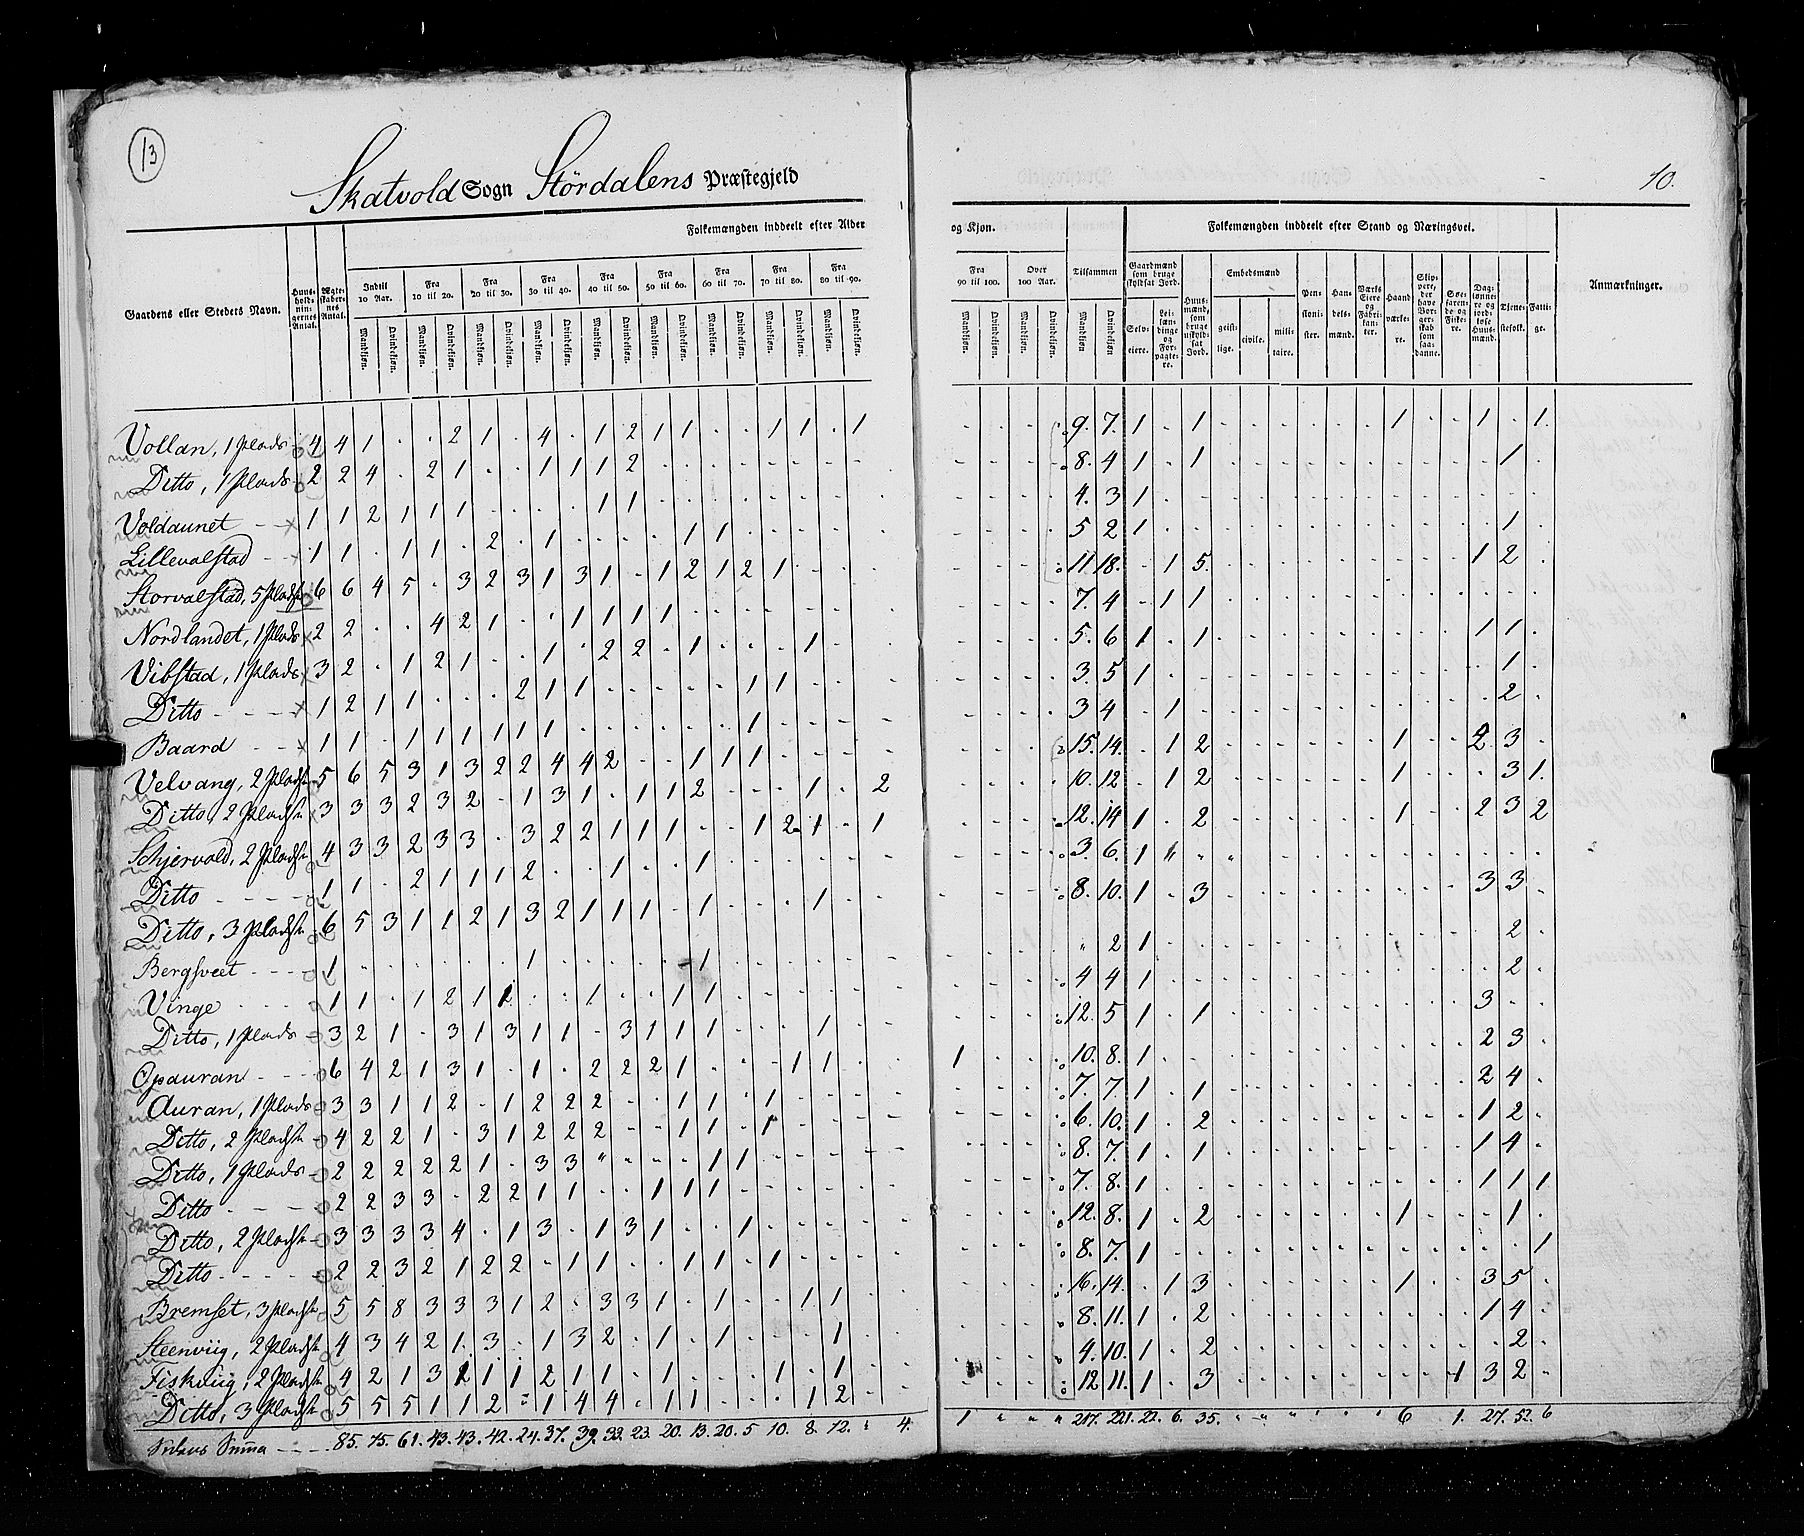 13
Skatvold Sogn Stördalens Præstegjeld
10.
Folkemængden inddeelt efter Alder
og Kjøn.
Folkemængden inddeelt efter Stand og Næringsvei.
Gaardens eller Stedets Navn.
Huus-holdnin-gernes Antal.
Ægte-skaber-nes Antal.
Indtil 10 Aar.
Fra 10 til 20.
Fra 20 til 30.
Fra 30 til 40.
Fra 40 til 50.
Fra 50 til 60.
Fra 60 til 70.
Fra 70 til 80.
Fra 80 til 90.
Fra 90 til 100.
Over 100 Aar.
Tilsammen
Mandkjøn. Qvindekjøn.
Gaardmænd som bruge skyldsat Jord.
Selv-eiere.
Lei-lændinge og For-pagte-re.
Huus-mænd, som bruge uskyld-sat Jord.
Embedsmænd
geist-lige.
civile.
mili-taire.
Pen-sioni-ster.
Han-dels-mænd.
Værks Eiere og Fabri-kan-ter.
Haand værke-re.
Skip-pere, der have Bor-ger-skab som saa-danne.
Søe-faren-de og Fiske-re.
Dag-lønne-re og jord-løse Huus-mænd.
Tjene-stefolk.
Fatti-ge.
Anmærkninger.
Vollan, 1 Plads 4 4 1 . . 2 1 . 4 . 1 2 1 1 . . 1 1 . 1 9. 7. 1 . 1 1 1 . 1.
Ditto, 1 Plads 2 2 4 . 2 1 . . 1 1 1 2 8. 4 1 . 1 1
Voldaunet 1 1 2 1 1 1 . . . . 1 1 4. 3 1
Lillevalstad 1 1 . 1 1 . 2 . 1 . . . . 1 1 5 2 1 1
Storvalstad, 5 Pladse 6 6 4 5 . 3 2 3 1 3 1 . 1 2 1 2 1 11 18. . 1 5. 1 2
Nordlandet, 1 Plads 2 2 . . 4 2 1 . . 1 1 1 1 7. 4 . 1 1
Vibstad, 1 Plads 3 2 . 1 2 1 . . 1 . 2 2 . 1 . . . 1 5. 6 1 . 1 1 1
Ditto 1 2 1 1 . . . 2 1 1 . . . . . 1 1 3 5 1 1
Baard 1 1 . 1 1 1 1 1 1 . . . . . . 1 3 4 . 1 2
Velvang, 2 Pladse 5 6 5 3 1 3 2 2 4 4 2 . . 1 1 1 15. 14. . 1 2 1 2 3
Ditto, 2 Pladse 3 3 3 2 3 2 . 1 3 1 . 1 1 2 . . . 1 . 2 10. 12 . 1 2 1 3 1.
Schjervold, 2 Pladse 4 3 3 2 3 3 . 3 2 2 1 1 1 . . 1 2 1 . 1 12. 14 1 . 2 1 2 3 2
Ditto 1 1 . 2 1 1 1 2 . . 1 . . 1 3. 6. 1
Ditto, 3 Pladse 6 5 3 1 1 2 1 3 2 1 1 1 . 1 . . . 1 8. 10. 1 . 3 3 3
Bergsveet 1 . . . . . . 1 . . . . . 1 " 2 1 2
Vinge 1 1 . 1 2 1 1 . . 1 . . 1 1 4 4 1 2
Ditto, 1 Plads 3 2 1 . 3 1 3 1 1 . 3 1 1 1 . . . 1 12. 5 1 . 1 3
Opauran 6 4 2 1 3 1 . 1 . 2 2 2 1 . . . 1 1 1 10. 8. 1 2 3
Auran, 1 Plads 3 3 1 1 2 . 1 2 2 2 . . 1 1 . 1 7. 7. 1 . 1 2 4
Ditto, 2 Pladse 4 2 2 1 . 3 1 2 2 2 . . 1 1 . 1 6. 10. 1 . 2 1 2
Ditto, 1 Plads 2 2 2 2 2 1 . 3 3 " . . . 1 1 8. 7. 1 . 1 1 4
Ditto 2 2 3 3 . 2 2 1 1 . . 1 1 1 7. 8. 1 1 1 1
Ditto, 2 Pladse 3 3 3 3 4 . 1 3 . 1 3 1 . . 1 12. 8. 1 . 2 1 1
Ditto 2 2 3 2 1 2 2 . 1 1 . . 1 1 . 1 8. 7. 1 1
Bremset, 3 Pladse 5 5 8 3 3 3 1 2 . 3 3 1 . 1 . . 1 1 16. 14. . 1 3 1 3 5
Steenviig, 2 Pladse 4 3 4 2 1 . 3 . 1 3 2 . 1 . 1 . . . 1 8. 11. 1 . 2 1 4
Fiskviig, 2 Pladse 4 2 1 3 1 1 1 2 1 1 . 1 . . . 1 . 1 4. 10. 1 . 2 2
Ditto, 3 Pladse 5 5 5 1 1 2 . 1 4 4 . 1 1 . . . 1 2 12 11. 1 . 3 1 3 2
Sidens Summa 85. 75. 61. 43. 43. 42. 24. 37. 39. 33. 23. 20. 13. 20. 5 10. 8. 12. 4. 1 " " " 217. 221. 22. 6. 35. 6 1. 27. 52. 6